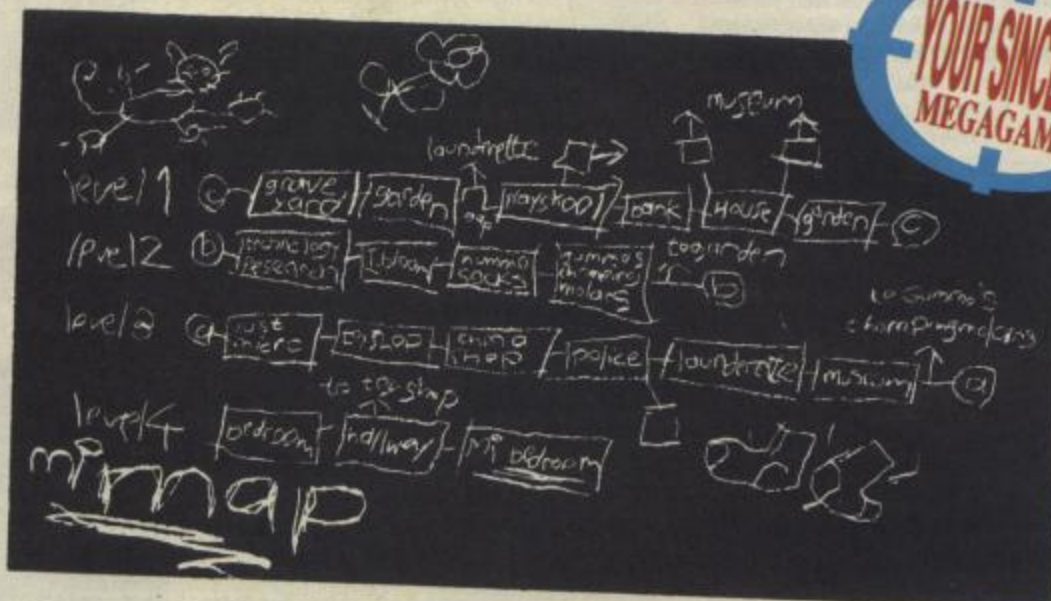 YOUR SINC
MEGAGAM
museum
laundrette
level 1 c grave yard garden playskool bank House garden c
level 2 b technology research T.bloom nummo socks gummos chomping molars to garden b
to Gummo's
chomping
level 3 a just micro china shop police launderette museum a
to toy shop
level 4 bedroom hallway Mi bedroom
mi map